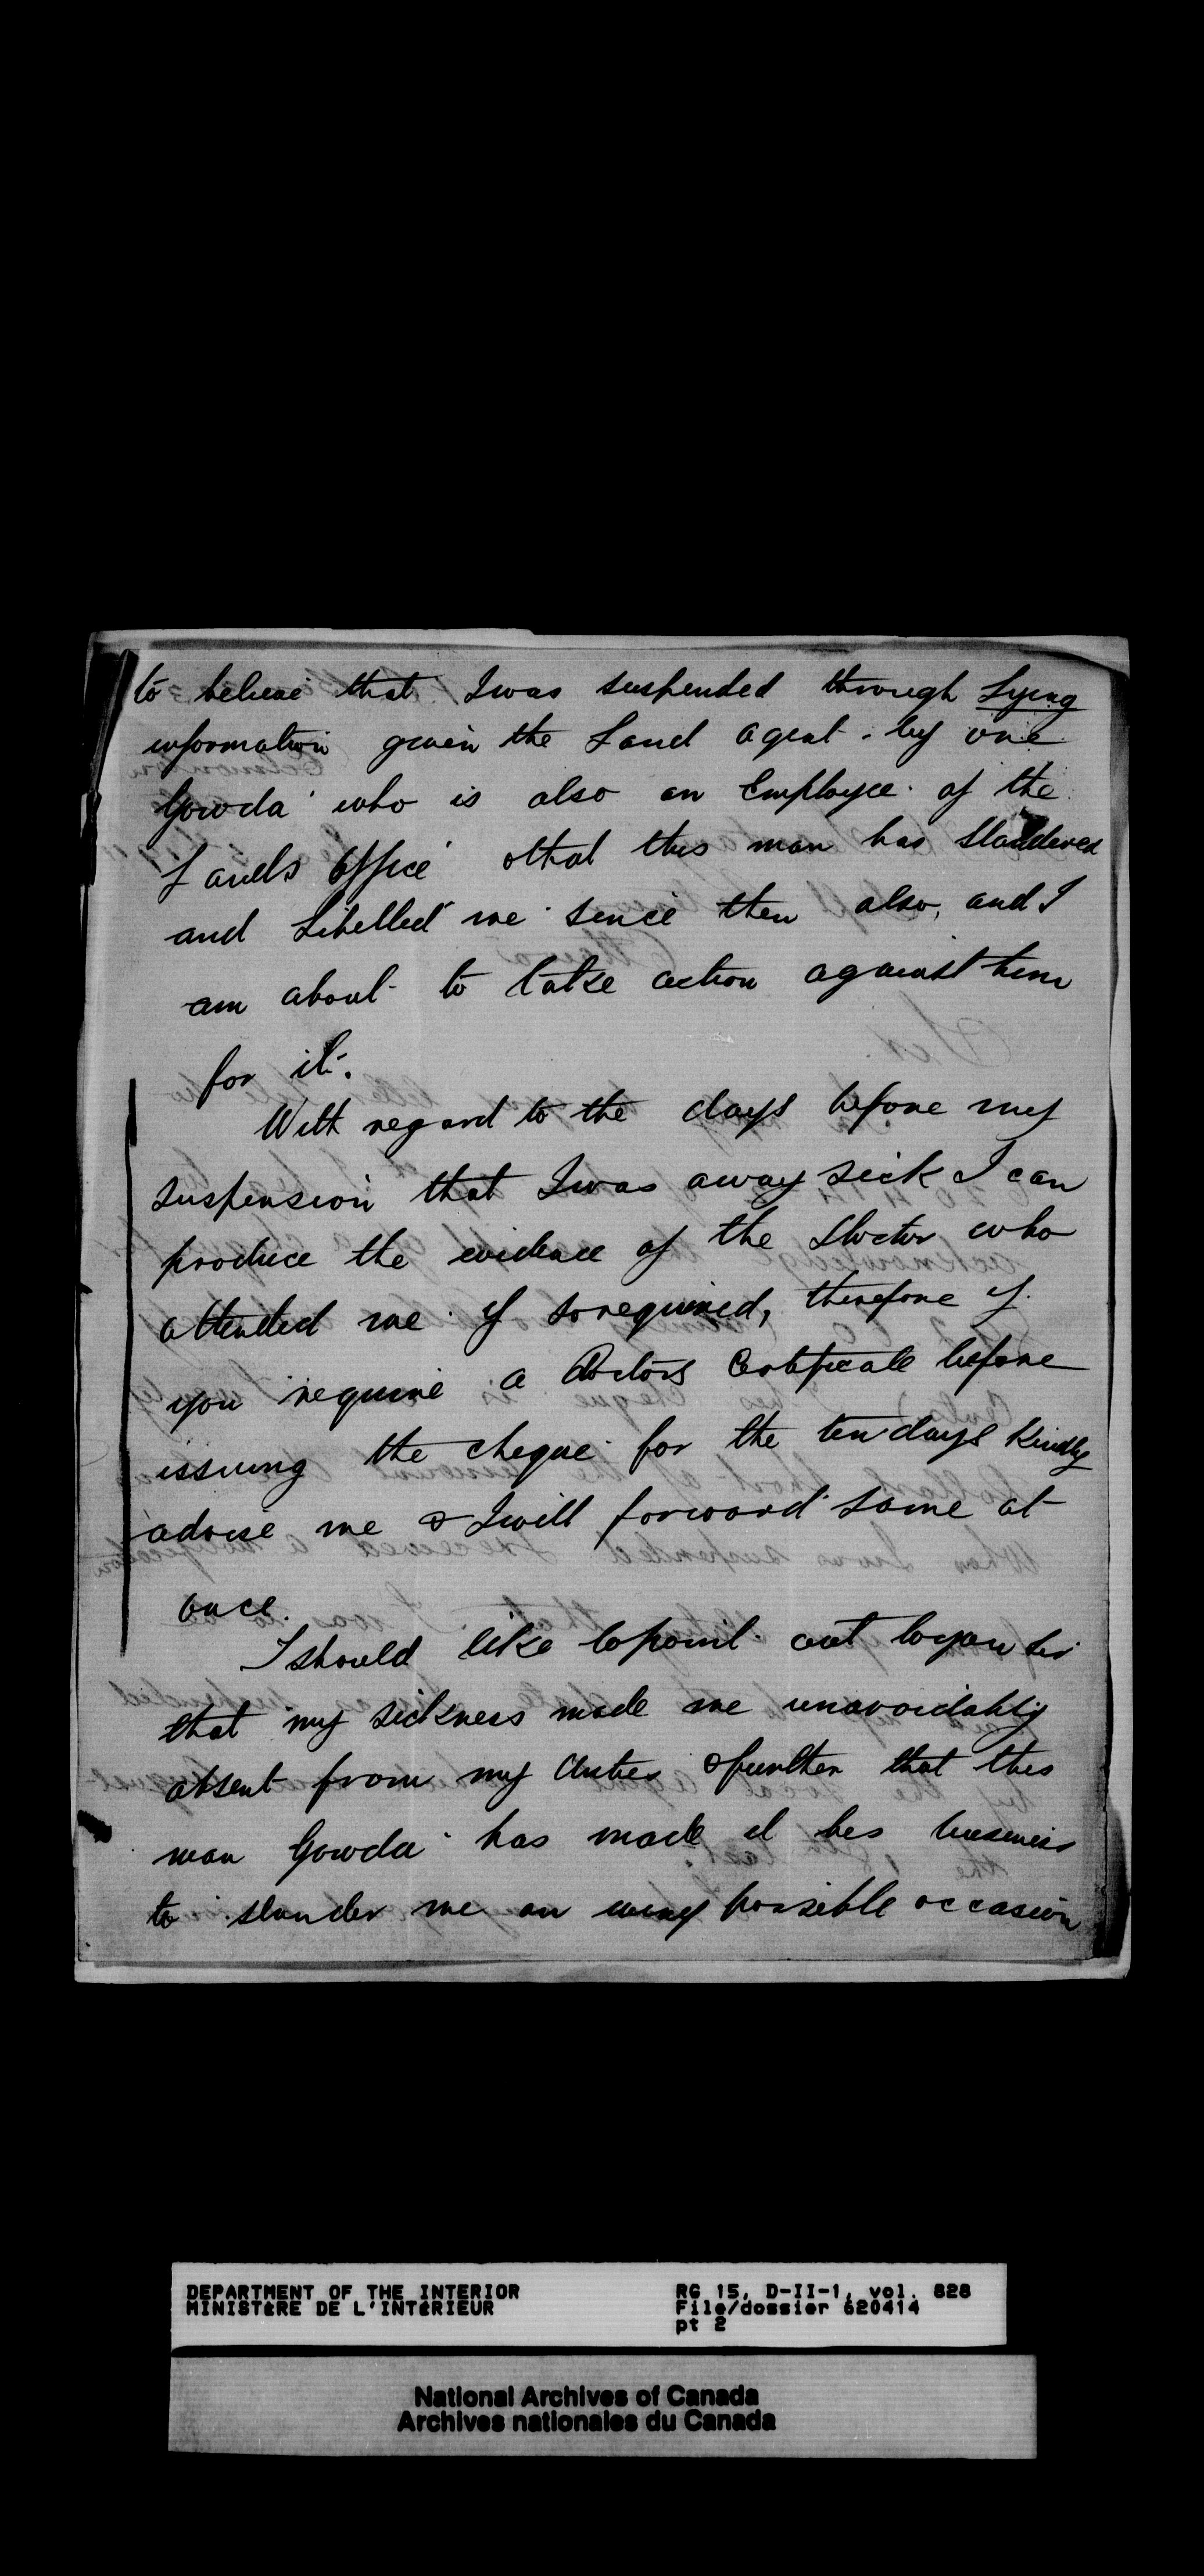 to believe that I was suspended through Lying
information given the Land Agent by one
Gowda who is also an Employee of the
Lands Office & that this man has Slandered
and Libelled me since then also, and I
am about to take action against him
for it.
With regard to the days before my
suspension that I was away sick I can
produce the evidence of the Doctor who
attended me if so required, therefore if
you require a Doctors Certificate before
issuing the cheque for the ten days Kindly
advise me & I will forward same at
once.
I should like to point out to you Sir
that my sickness made me unavoidably
absent from my duties & further that this
man Gowda has made it his business
to slander me on every possible occasion
DEPARTMENT OF THE INTERIOR
MINISTÈRE DE L'INTÉRIEUR
RG 15, D-II-1, vol. 828
File/dossier 620414
pt 2
National Archives of Canada
Archives nationales du Canada